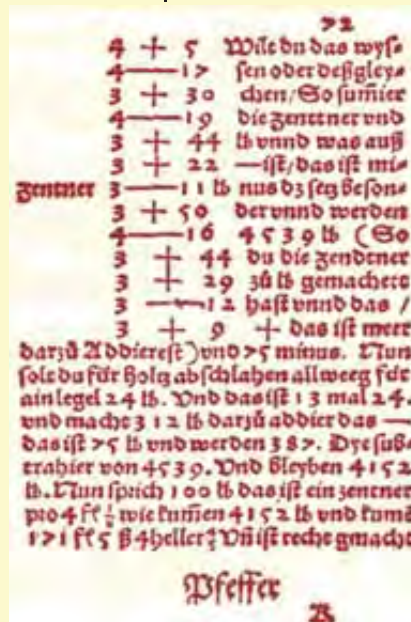 72
4 + 5 Wilt du das wyſ⸗
4 — 17 ſen oder deßgley⸗
3 + 30 chen / So ſumier
4 — 19 die zentner vnd
3 + 44 lb vnnd was auß
3 + 22 — iſt / das iſt mi⸗
zentner 3 — 11 lb nus dz ſetz beſon⸗
3 + 50 der vnnd werden
4 — 16 4539 lb (So
3 + 44 du die zendtner
3 + 29 zů lb gemachett
3 — 12 haſt vnnd das /
3 + 9 + das iſt meer
darzů Addiereſt) vnd 75 minus. Nun
ſolt du für holtz abſchlahen allweeg für
ain legel 24 lb. Vnd das iſt 13 mal 24.
vnd macht 312 lb darzů addier das —
das iſt 75 lb vnd werden 387. Dye ſub⸗
trahier von 4539. Vnd bleyben 4152
lb. Nun ſprich 100 lb das iſt ein zentner
pro 4 fl ½ wie kum̄en 4152 lb vnd kum̄t
171 fl 5 ß 4 heller? Vn̄ iſt recht gmacht
Pfeffer
B